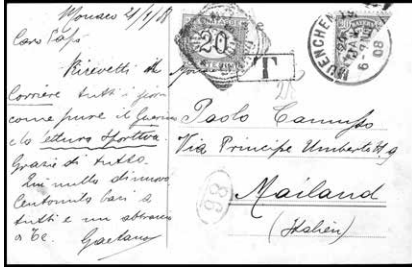 Monaco 21/1/08
Caro Papi
Ricevetti il
Corriere tutti i giorni
come pure il Guerin
e la lettura Sportiva.
Grazie di tutto.
Qui nulla di nuovo
Centomila baci a
tutti e un abbraccio
a Te. Gaetano
20
T
MUENCHEN
08
Paolo Camusso
Via Principe Umberto 9
Mailand
(Italien)